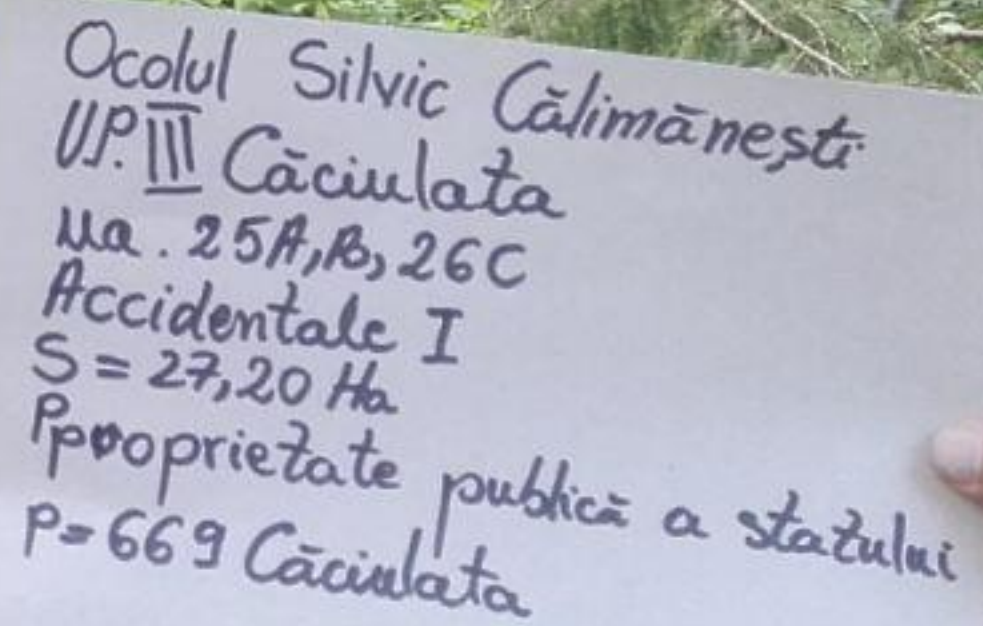 Ocolul Silvic Călimănești
UP. III Căciulata
ua. 25A, B, 26C
Accidentale I
S = 27,20 Ha
Pproprietate publică a statului
P= 669 Căciulata